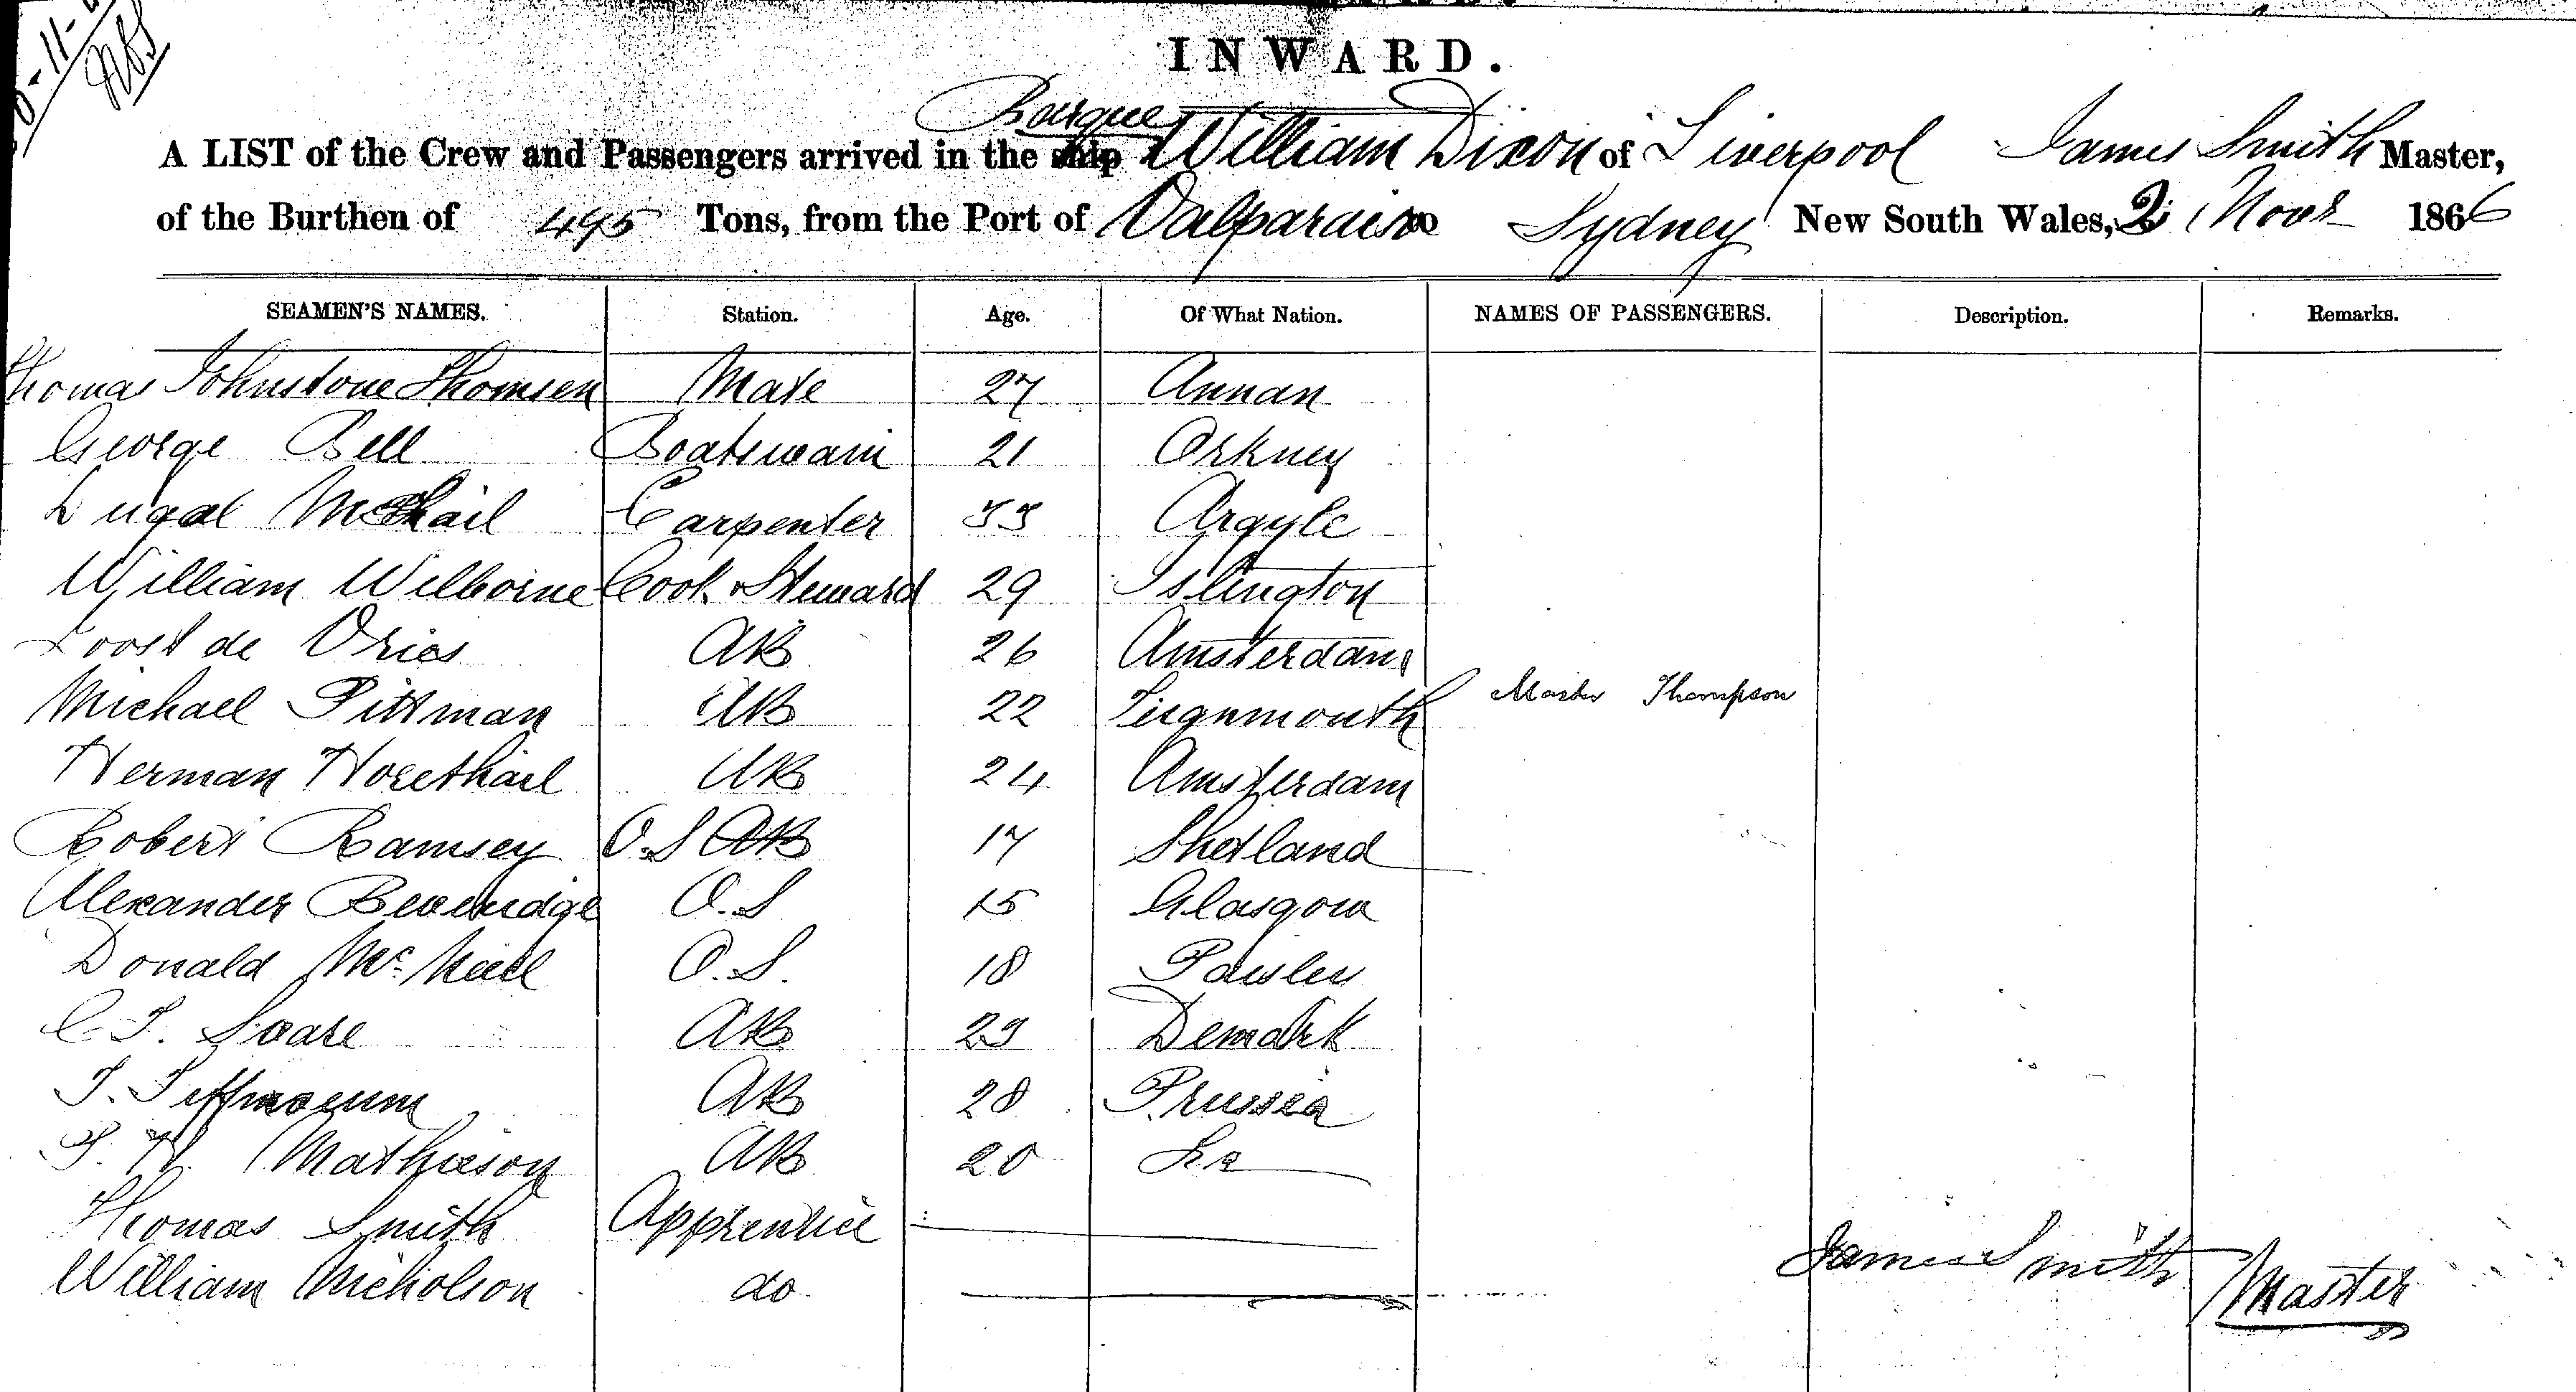 INWARD.
Barque
A LIST of the Crew and Passengers arrived in the ship William Dixon of Liverpool James Smith Master,
of the Burthen of 495 Tons, from the Port of Valparaiso Sydney New South Wales, 2 Novr 1866
SEAMEN'S NAMES. Station. Age. Of What Nation. NAMES OF PASSENGERS. Description. Remarks.
Thomas Johnstone Thomsen Mate 27 Annan
George Bell Boatswain 21 Orkney
Dugal McPhail Carpenter Argyle
William Wilborne Cook & Steward 29 Islington
Joost de Vries AB 26 Amsterdam
Michael Pittman AB 22 Teignmouth Master Thompson
Herman AB 24 Amsterdam
Robert Ramsey O.S AB 17 Shetland
Alexander Beveridge O.S 15 Glasgow
Donald McNeill O.S. 18 Paisley
C. T. AB Demark
AB 28 Prussia
Mathieson AB 20 Do
Thomas Smith Apprentice
William Nicholson do
James Smith Master